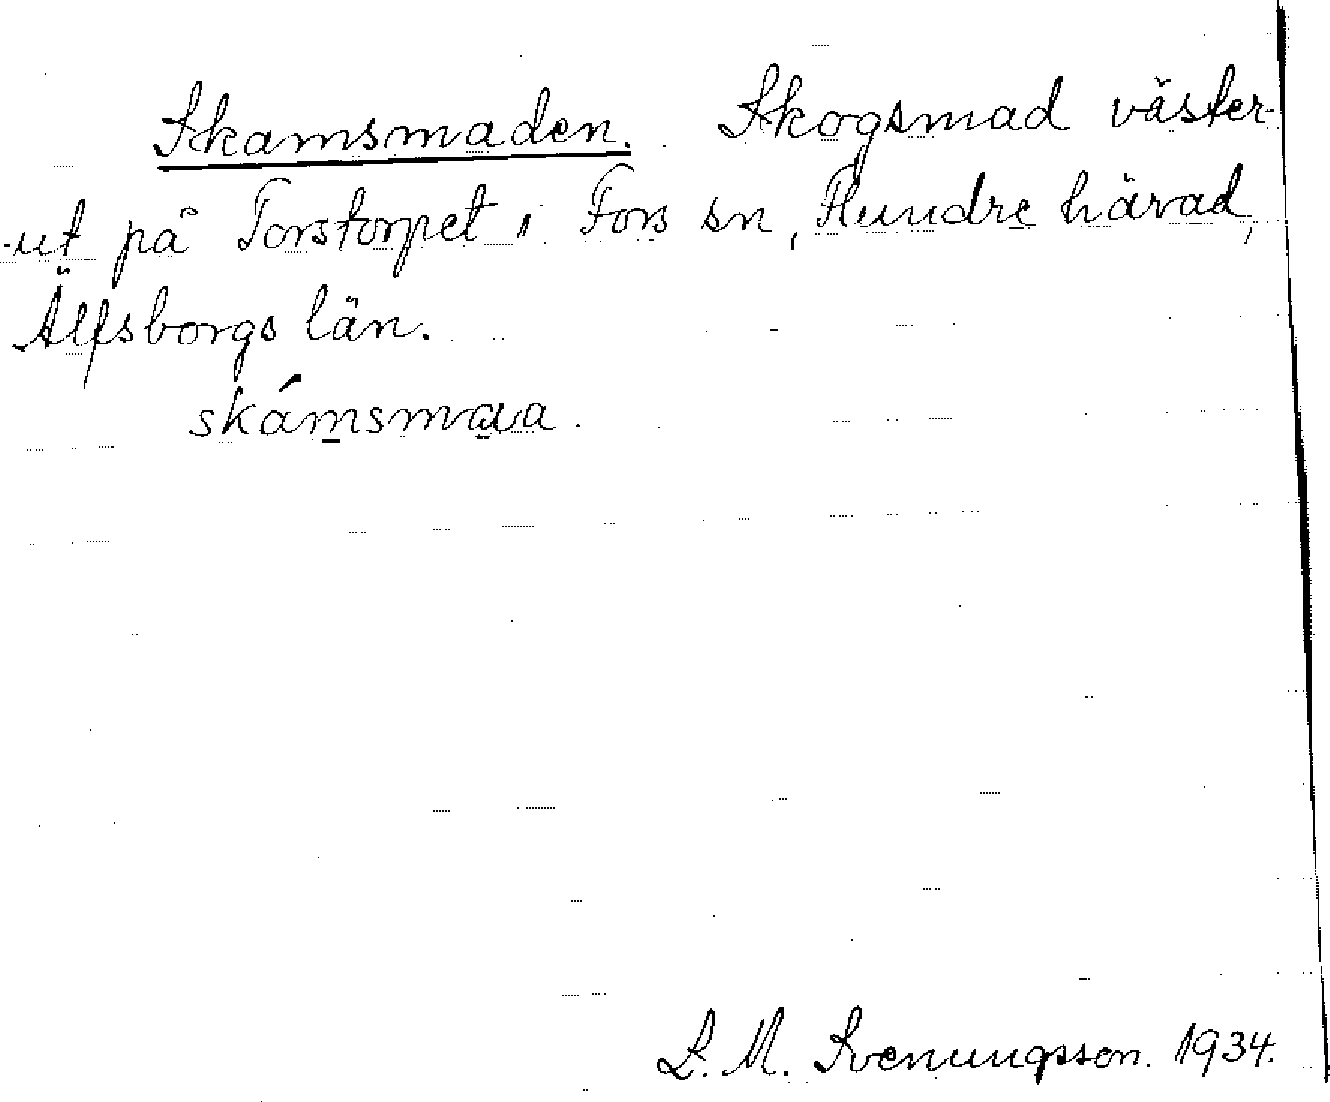 Skamsmaden. Skogsmad väster-
ut på Torstorpet i Fors sn, Flundre härad,
Älfsborgs län.
skámsmava.
L. M. Svenungsson. 1934.